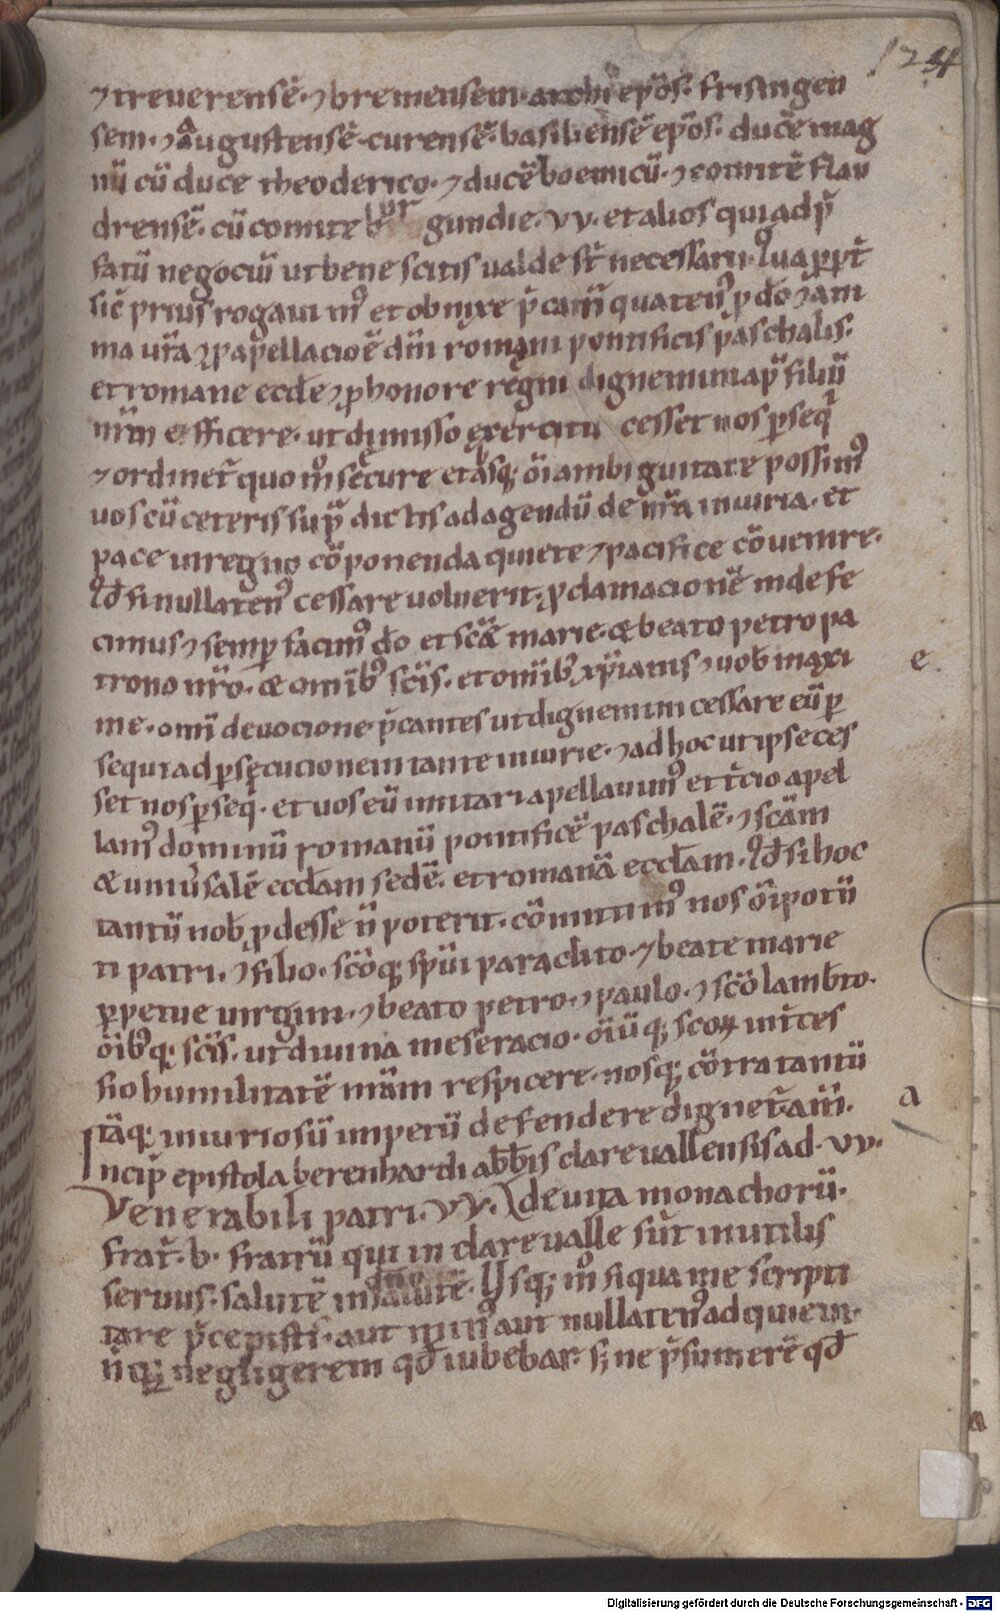 124
⁊ treuerensē. ⁊ bremensem. archiep̄os. frisingen
sem. ⁊ augustensē. curensē. basiliensē ep̄os. ducē mag
nū cū duce theoderico. ⁊ ducē boemicū. ⁊ comitē flan
drensē. cū comite burgundie. vv. et alios qui ad p̄
fatū negociū ut bene scitis ualde st̄ necessarii.
sic̄ prius rogaui mꝰ et obnixe p̄cam̄ quatenꝰ ꝓ dō ⁊ ani
ma ur̄a ⁊ ꝓ apellacioē dn̄i romani pontificis paschalis.
et romane eccl̄e ⁊ ꝓ honore regni dignemini ap̄ filiū
nr̄m efficere. ut dimisso exercitu cesset nos ꝑseq̄
⁊ ordinet̄ quo mͦ secure et absq; oī ambiguitate possimꝰ
uos cū ceteris sup̄ dictis ad agendū de nr̄a iniuria. et
pace in regno cōponenda quiete ⁊ pacifice cōuenire.
Qd̄ si nullatenꝰ cessare uoluerit. ꝓclamacionē inde fe
cimus ⁊ semꝑ facimꝰ dō et scē marie. & beato petro pa
trono nr̄o. & omībꝰ scīs. et omībꝰ xp̄ianis ⁊ uob̄ maxi
e
me. omī deuocione p̄cantes ut dignemini cessare eū ꝑ
sequi ad ꝑsecucionem tante iniurie. ⁊ ad hoc ut ipse ces
set nos ꝑseq̄. et uos eū imitari apellauimꝰ et t̄cio apel
lamꝰ dominū romanū pontificē paschalē. ⁊ scām
& uniūsalē eccl̄am sedē. et romanā eccl̄am. Qd̄ si hoc
tantū nob̄ ꝓdesse n̄ poterit. cōmittimꝰ nos oīpotn̄
ti patri. ⁊ filio. scōq; spūi paraclito. ⁊ beate marie
ꝑpetue uirgini. ⁊ beato petro. ⁊ paulo. ⁊ scō lamb̄to.
oībꝰq; scīs. ut diuina meseracio. oīūq; scoꝝ int̄ces
sio humilitatē nr̄am respicere. nosq; cōtra tantū
a
tāq; iniuriosū imperiū defendere dignet̄. am̄.
Incip̄ epistola berenhardi abb̄is clareuallensis ad. vv.
Venerabili patri. vv. de uita monachorū.
frat̄. b. fratrū qui in clareualle sūt inutilis
seruus. salutē in dn̄o. Usq; mͦ si qua me scripti
tare p̄cepisti. aut inuitꝰ aut nullatenꝰ adquieui.
n̄ q; negligerem qd̄ iubebar. s; ne p̄sumerē qd̄
Digitalisierung gefördert durch die Deutsche Forschungsgemeinschaft - DFG